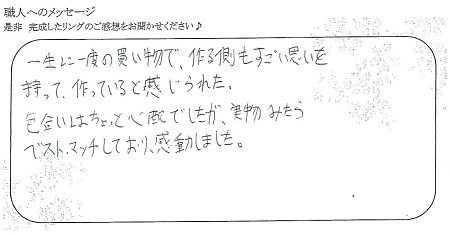 職人へのメッセージ
是非 完成したリングのご感想をお聞かせください♪
一生に一度の買い物で、作る側もすごい思いを
持って、作っていると感じられた。
色合いはちょっと心配でしたが、実物みたら
ベストマッチしており、感動しました。